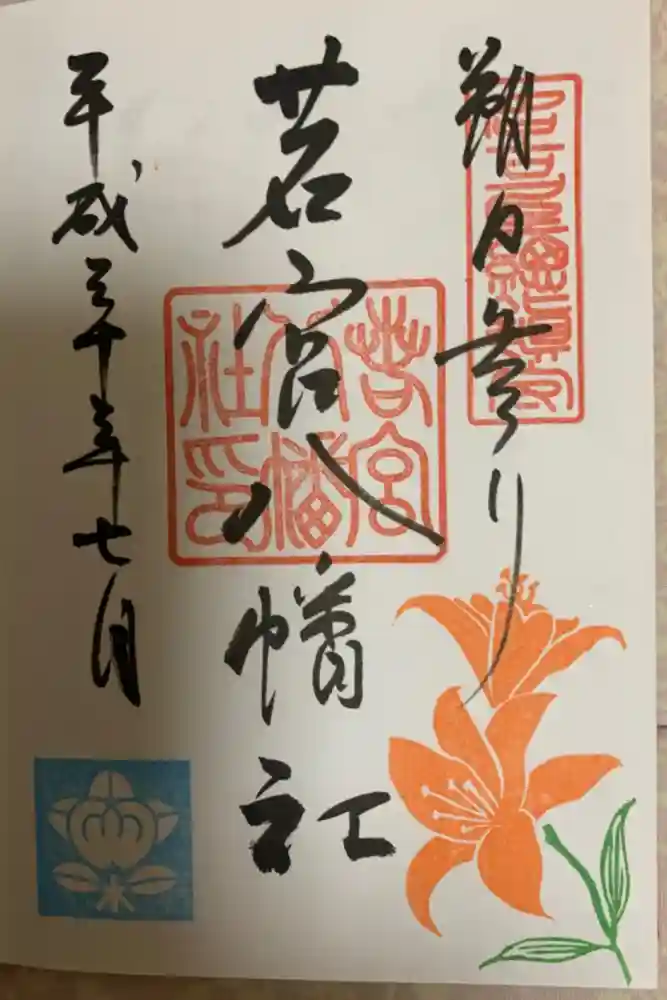 朔日参り
若宮八幡社
若宮八幡社印
平成三十年七月